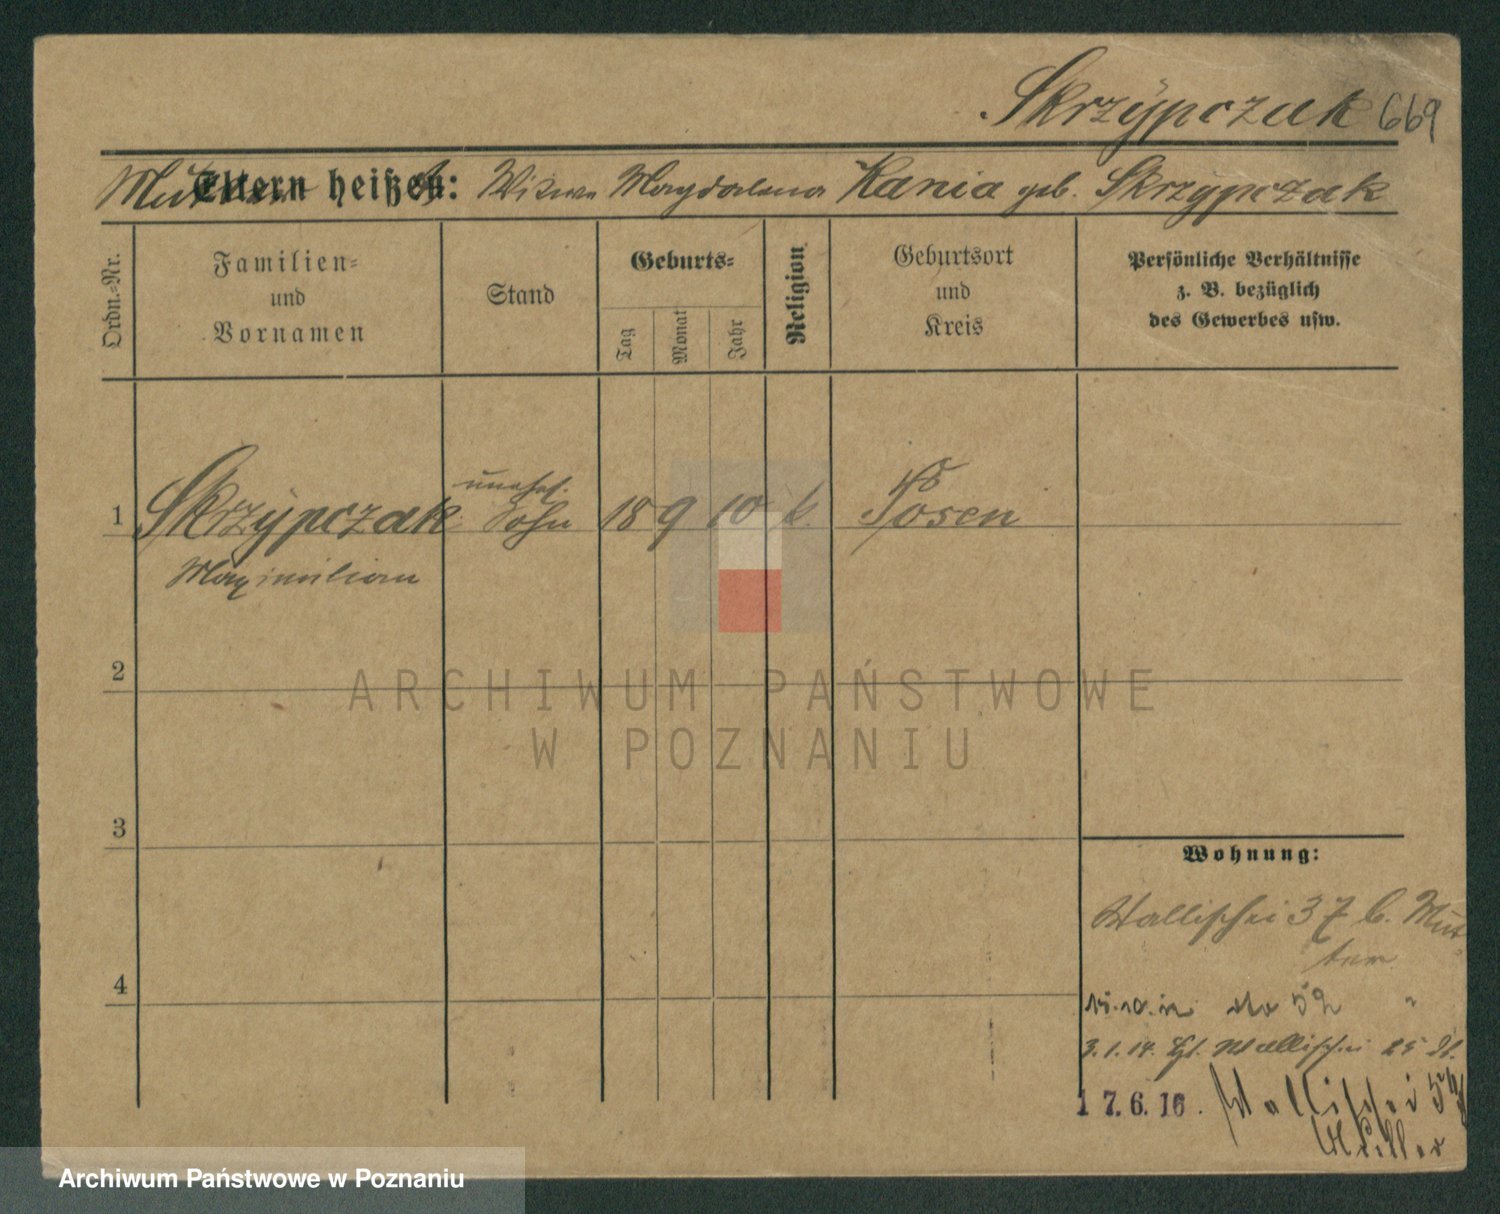 Skrzypczak 669
Mutter Eltern heißen: Witwe Magdalena Kania geb. Skrzypczak
Ordn.=Nr.
Familien=
und
Vornamen
Stand
Geburts=
Tag
Monat
Jahr
Religion
Geburtsort
und
Kreis
Persönliche Verhältnisse
z. B. bezüglich
des Gewerbes usw.
unehel.
1 Skrzypczak Sohn 18 9 10 k. Posen
Maximilian
2
ARCHIWUM PAŃSTWOWE
W POZNANIU
3
Wohnung:
Wallischei 37 b. Mut-
ter
4
15.10.12 dto 52 "
3.1.14. Wallischei 25
17.6.16. Wallischei 52
Archiwum Państwowe w Poznaniu